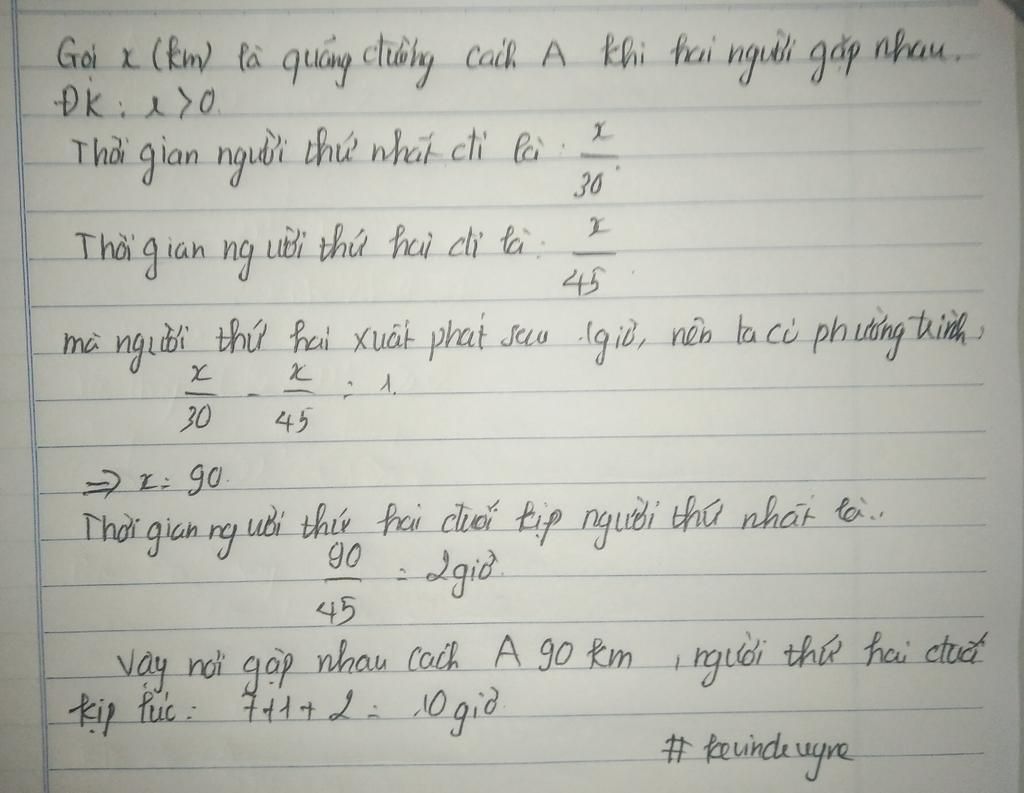 Gọi x (km) là quãng đường cách A khi hai người gặp nhau.
ĐK: x > 0.
Thời gian người thứ nhất đi là: x/30.
Thời gian người thứ hai đi là: x/45.
mà người thứ hai xuất phát sau 1giờ, nên ta có phương trình,
x/30 - x/45 = 1.
=> x = 90.
Thời gian người thứ hai đuổi kịp người thứ nhất là..
90/45 = 2giờ.
Vậy nơi gặp nhau cách A 90 km, người thứ hai đuổi
kịp lúc: 7+1+2 = 10 giờ.